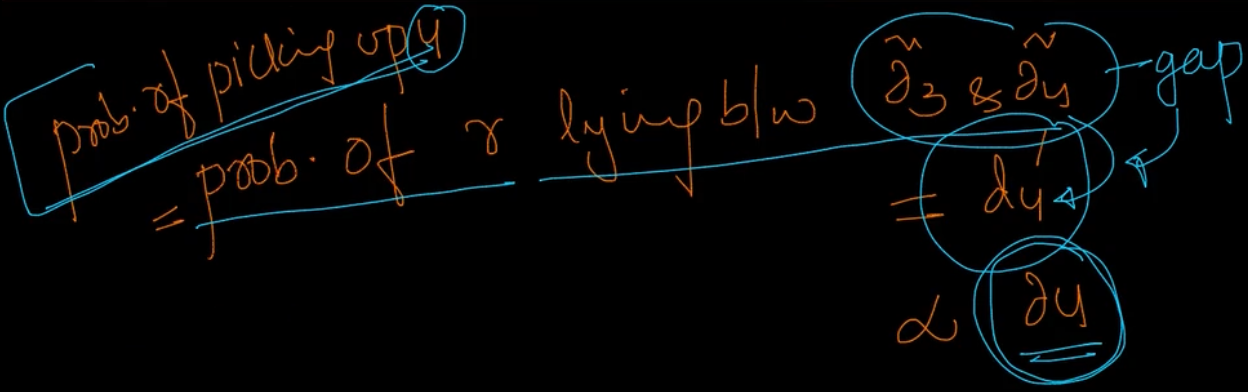 prob. of picking up 4
= prob. of r lying b/w d̃3 & d̃4 - gap
= d4'
∝ d4